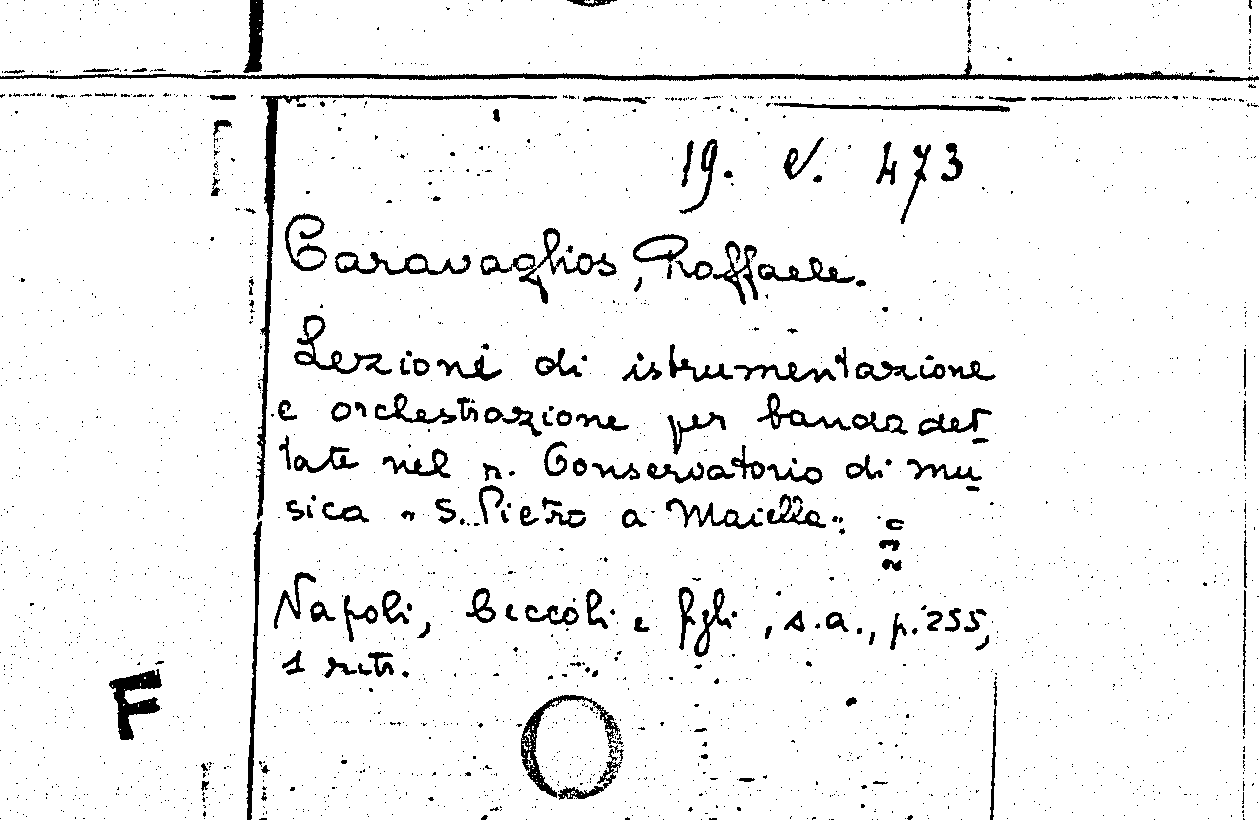 19. V. 473
Caravaglios, Raffaele.
Lezioni di istrumentazione
e orchestrazione per banda det-
tate nel r. Conservatorio di mu-
sica "S. Pietro a Maiella".
Napoli, Ceccoli e figli, s.a., p. 255,
1 ritr.
F